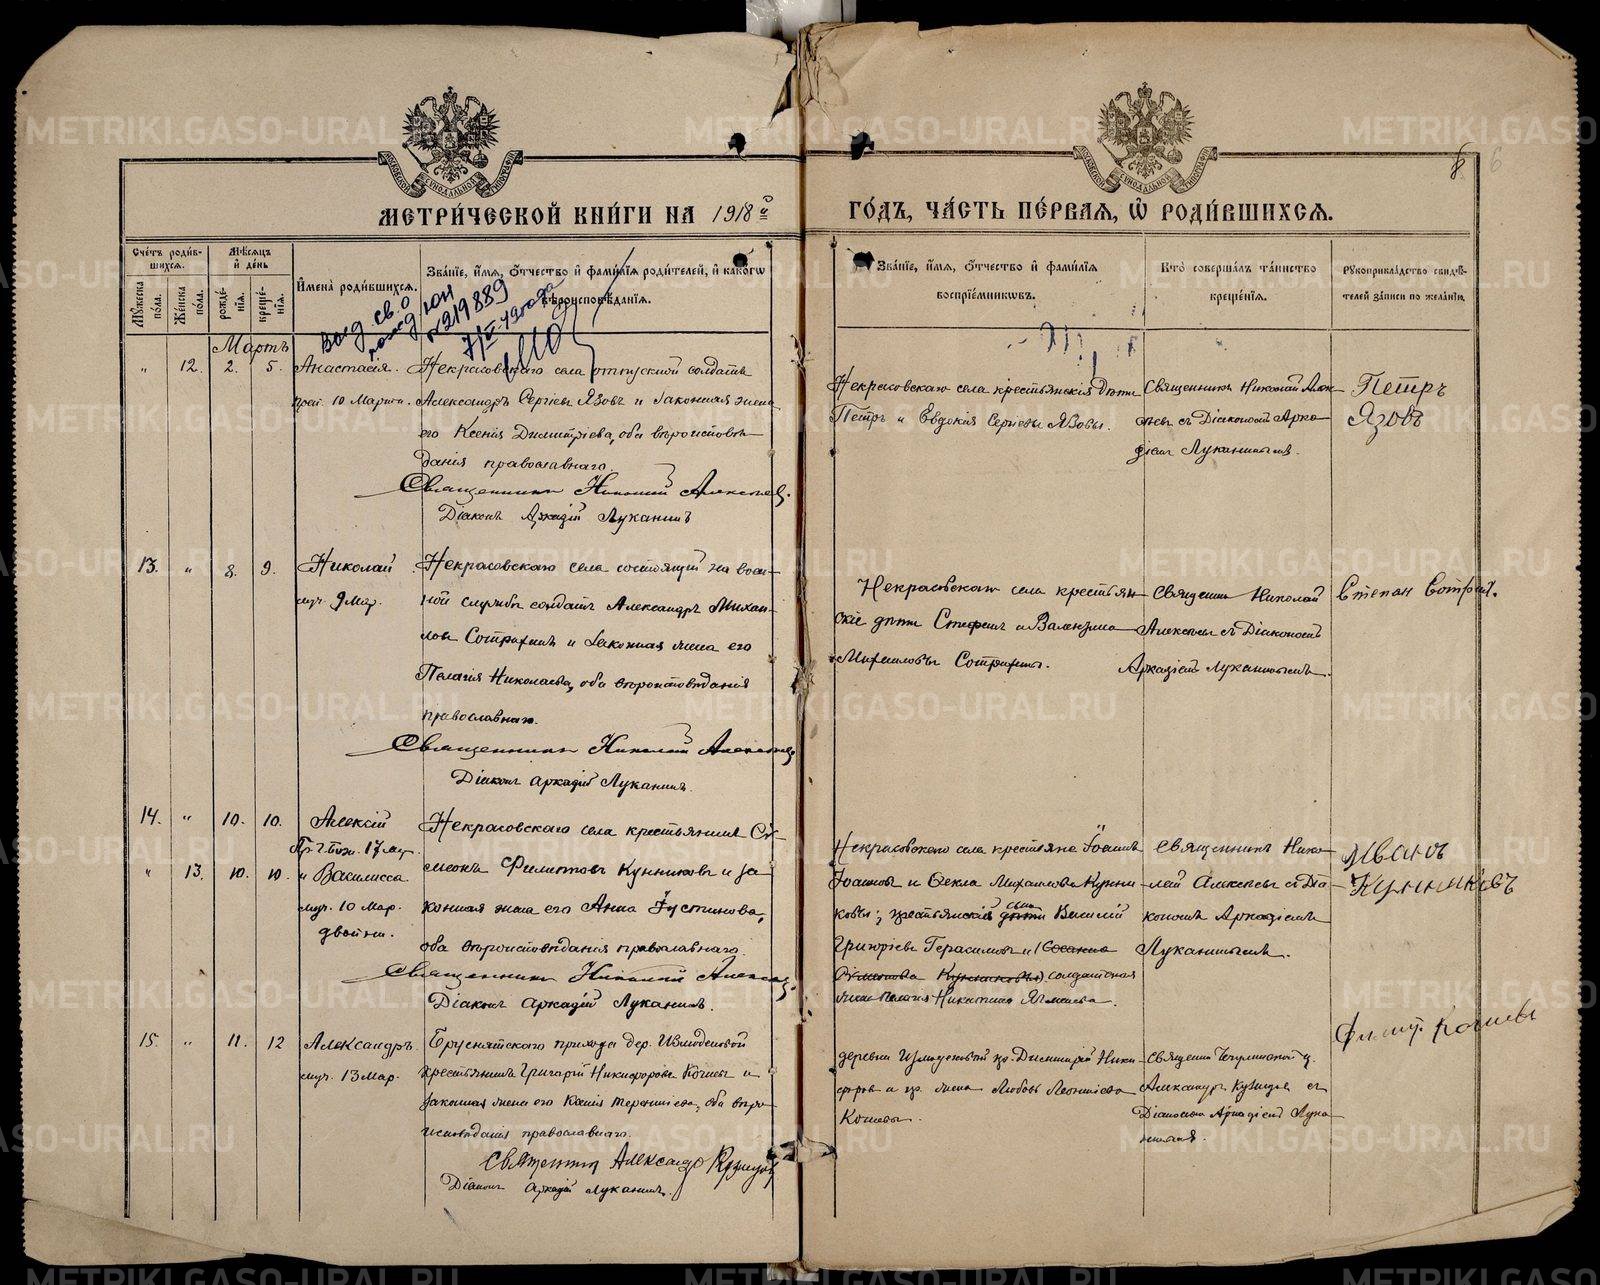 МЕТРИ́ЧЕСКОЙ КНИ́ГИ НА 1918 й
ГО́ДЪ, ЧА́СТЬ ПЕ́РВАЯ, Ѽ РОДИ́ВШИХСЯ.
6
Сче́тъ роди́вшихся.
Му́жеска по́ла.
Же́нска по́ла.
Мѣ́сяцъ и҆ де́нь
рожде́нїя.
креще́нїя.
И҆мена̀ роди́вшихся.
Зва́нїе, и҆́мя, ѻ҆́тчество и҆ фами́лїя роди́телей, и҆ како́гѡ вѣроисповѣ́данїя.
Зва́нїе, и҆́мя, ѻ҆́тчество и҆ фами́лїя воспрїе́мниковъ.
Кто̀ соверша́лъ та́инство креще́нїя.
Рукоприкла́дство свидѣ́телей за́писи по жела́нїю.
Выд. св. о
рожд
№219889
Мартъ
" 12. 2. 5. Анастасія.
преп. 10 Марта.
Некрасовскаго села отпускной солдатъ
Александръ Сергѣевъ Язовъ и законная жена
его Ксенія Димитріева, оба вѣроисповѣ-
данія православнаго.
Священникъ Николай Алексѣев.
Діаконъ Аркадій Луканинъ
Некрасовскаго села крестьянскія дѣти
Петръ и Евдокія Сергѣевы Язовы.
Священникъ Николай Алек-
сѣевъ съ Діакономъ Арка-
діемъ Луканинымъ.
Петръ
Язовъ
13. " 8. 9. Николай
муч. 9 Мар.
Некрасовскаго села состоящій на воен-
ной службѣ солдатъ Александръ Михаи-
ловъ и законная жена его
Пелагія Николаева, оба вѣроисповѣданія
православнаго.
Священникъ Николай Алексѣев
Діаконъ Аркадій Луканинъ.
Некрасовскаго села крестьян-
скіе дѣти Стефанъ и Валентина
Михаиловы
Священникъ Николай
Алексѣевъ съ Діакономъ
Аркадіемъ Луканинымъ.
Степан
14. " 10. 10. Алексій
Пр. ч. Бож. 17 Мар.
" 13. 10. 10. и Василисса
муч. 10 Мар.
двойни.
Некрасовскаго села крестьянинъ Си-
меонъ Филиповъ Кунниковъ и за-
конная жена его Анна Іустинова,
оба вѣроисповѣданія православнаго.
Священникъ Николай Алексѣев
Діаконъ Аркадій Луканинъ.
Некрасовскаго села крестьяне Іоаннъ
Іоанновъ и Ѳекла Михаилова Кунни-
ковы; крестьянскій сынъ дѣти Василій
Григоріевъ Герасимовъ и
солдатская
жена Пелагія Никитина
Священникъ Нико-
лай Алексѣевъ съ Діа-
кономъ Аркадіемъ
Луканинымъ.
Иванъ
Кунниковъ
15. " 11. 12 Александръ.
муч. 13 Мар.
Бруснятскаго прихода дер. Измоденовой
крестьянинъ Григорій Никифоровъ Кочневъ и
законная жена его Ксенія Терентіева, оба вѣро-
исповѣданія православнаго.
Священникъ Александръ
Діаконъ Аркадій Луканинъ.
деревни Измоденовой кр. Димитрій Ники-
форовъ и кр. жена Любовь Леонтіева
Кочневы.
Священникъ ц.
Александръ съ
Діакономъ Аркадіемъ Лука-
нинымъ.
Димит. Кочневъ
METRIKI.GASO-URAL.RU